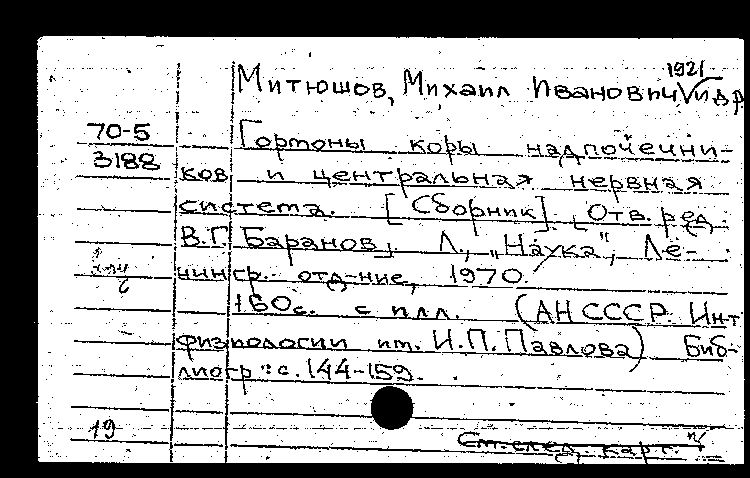 1921
Митюшов, Михаил Иванович и др.
70-5
Гормоны коры надпочечни-
3188
ков и центральная нервная
система. [Сборник]. [Отв. ред.
В.Г. Баранов]. Л., „Наука", Ле-
нингр. отд-ние, 1970.
160с. с илл. (АН СССР. Ин-т
физиологии им. И.П. Павлова) Биб-
лиогр.: с. 144-159.
19
См. след. карт.